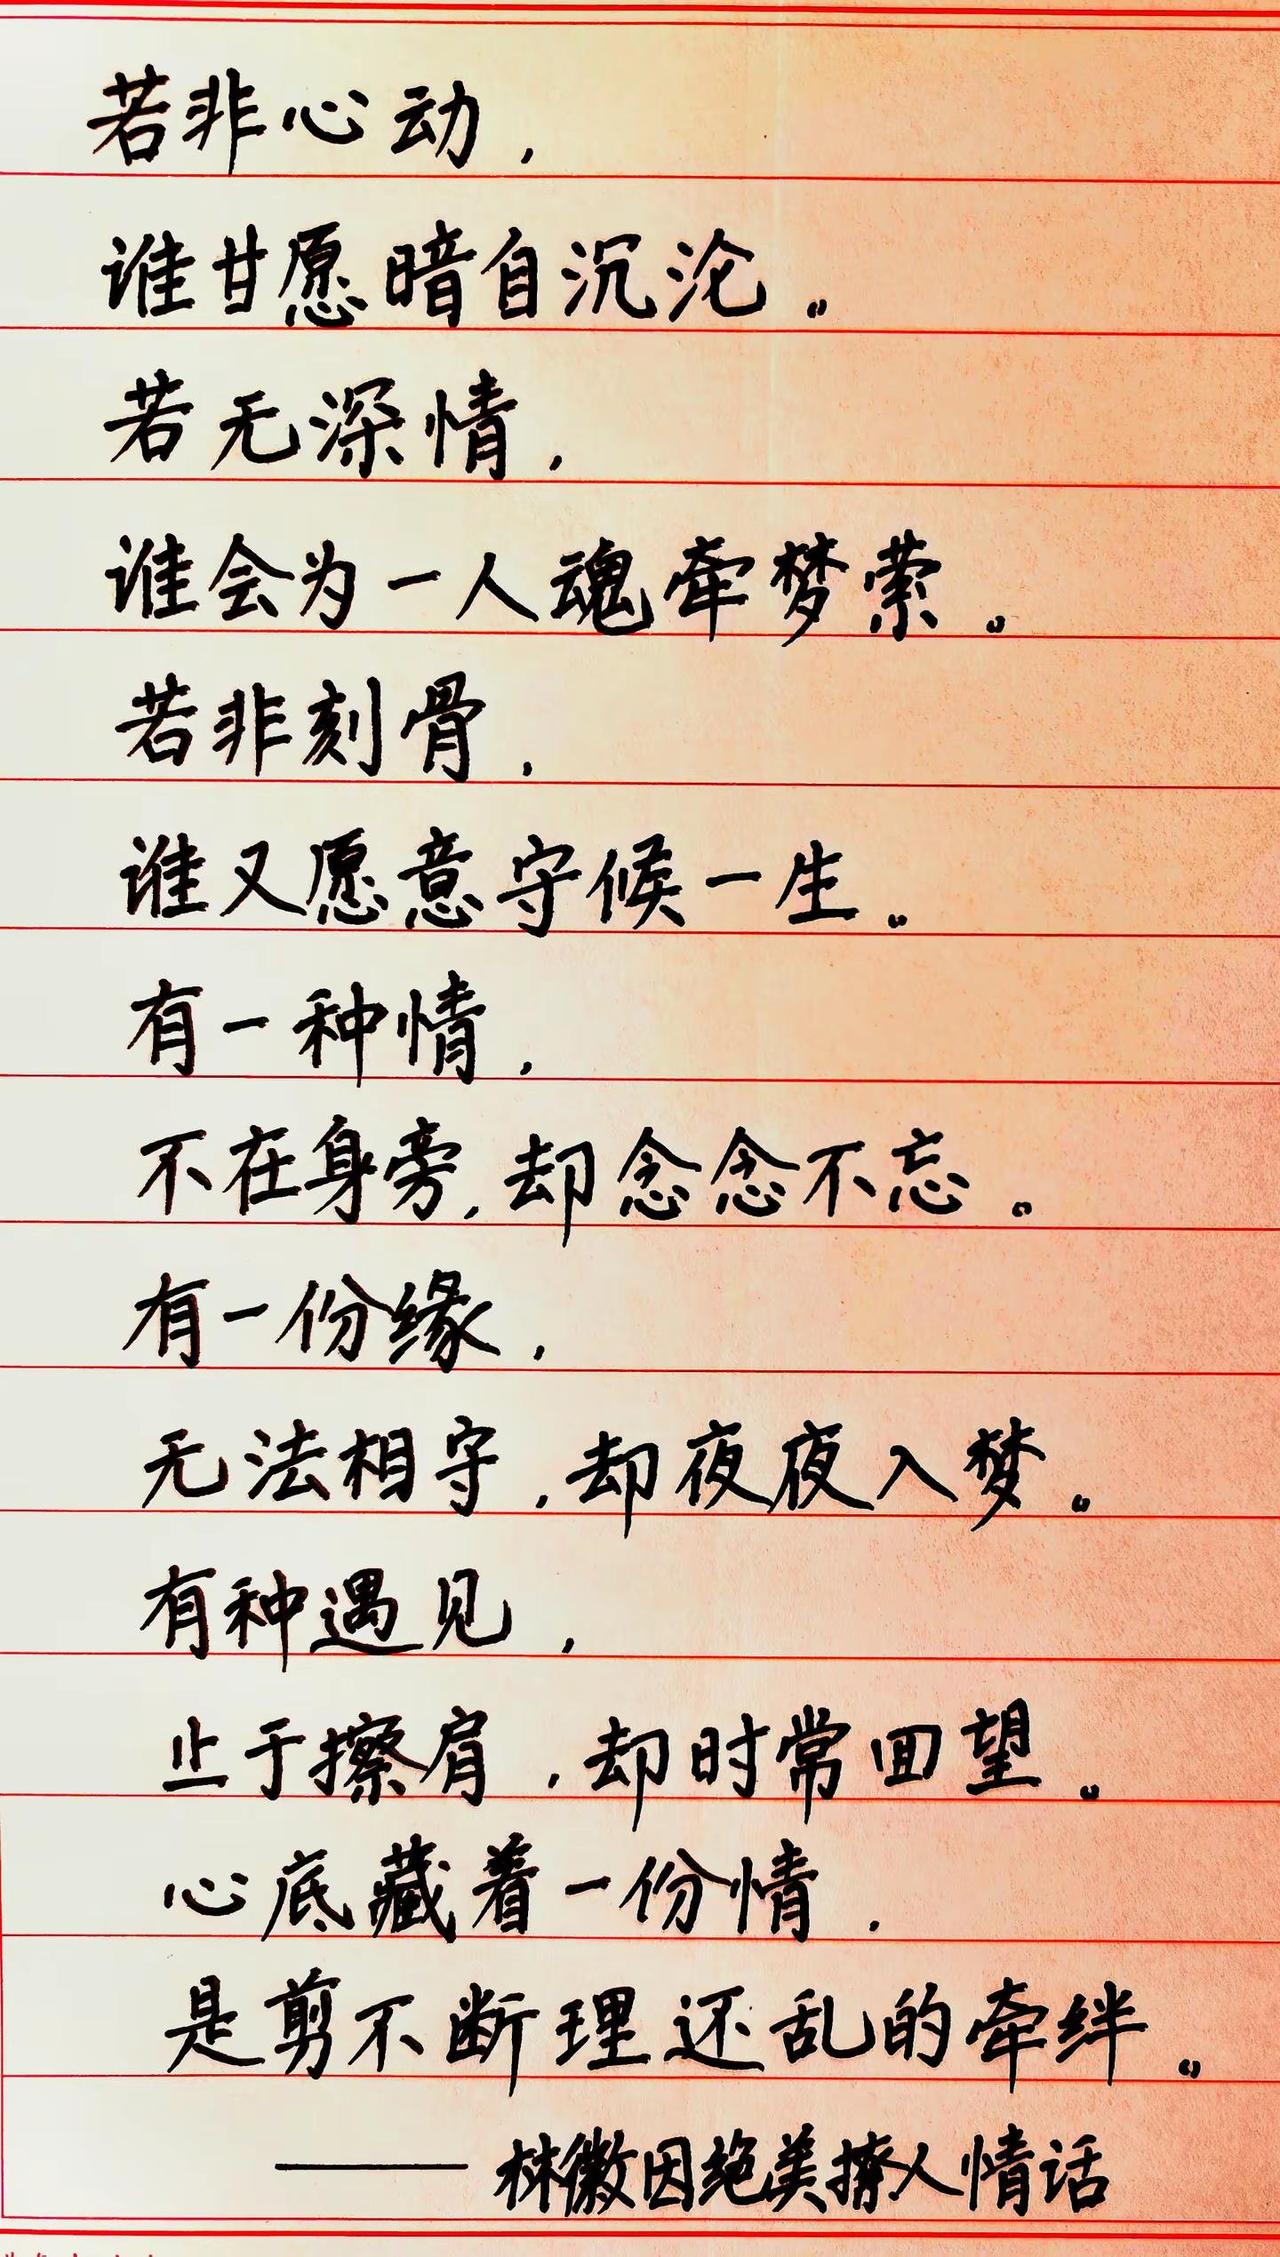 若非心动，
谁甘愿暗自沉沦。
若无深情，
谁会为一人魂牵梦萦。
若非刻骨，
谁又愿意守候一生。
有一种情，
不在身旁，却念念不忘。
有一份缘，
无法相守，却夜夜入梦。
有种遇见，
止于擦肩，却时常回望。
心底藏着一份情，
是剪不断理还乱的牵绊。
——林徽因绝美撩人情话